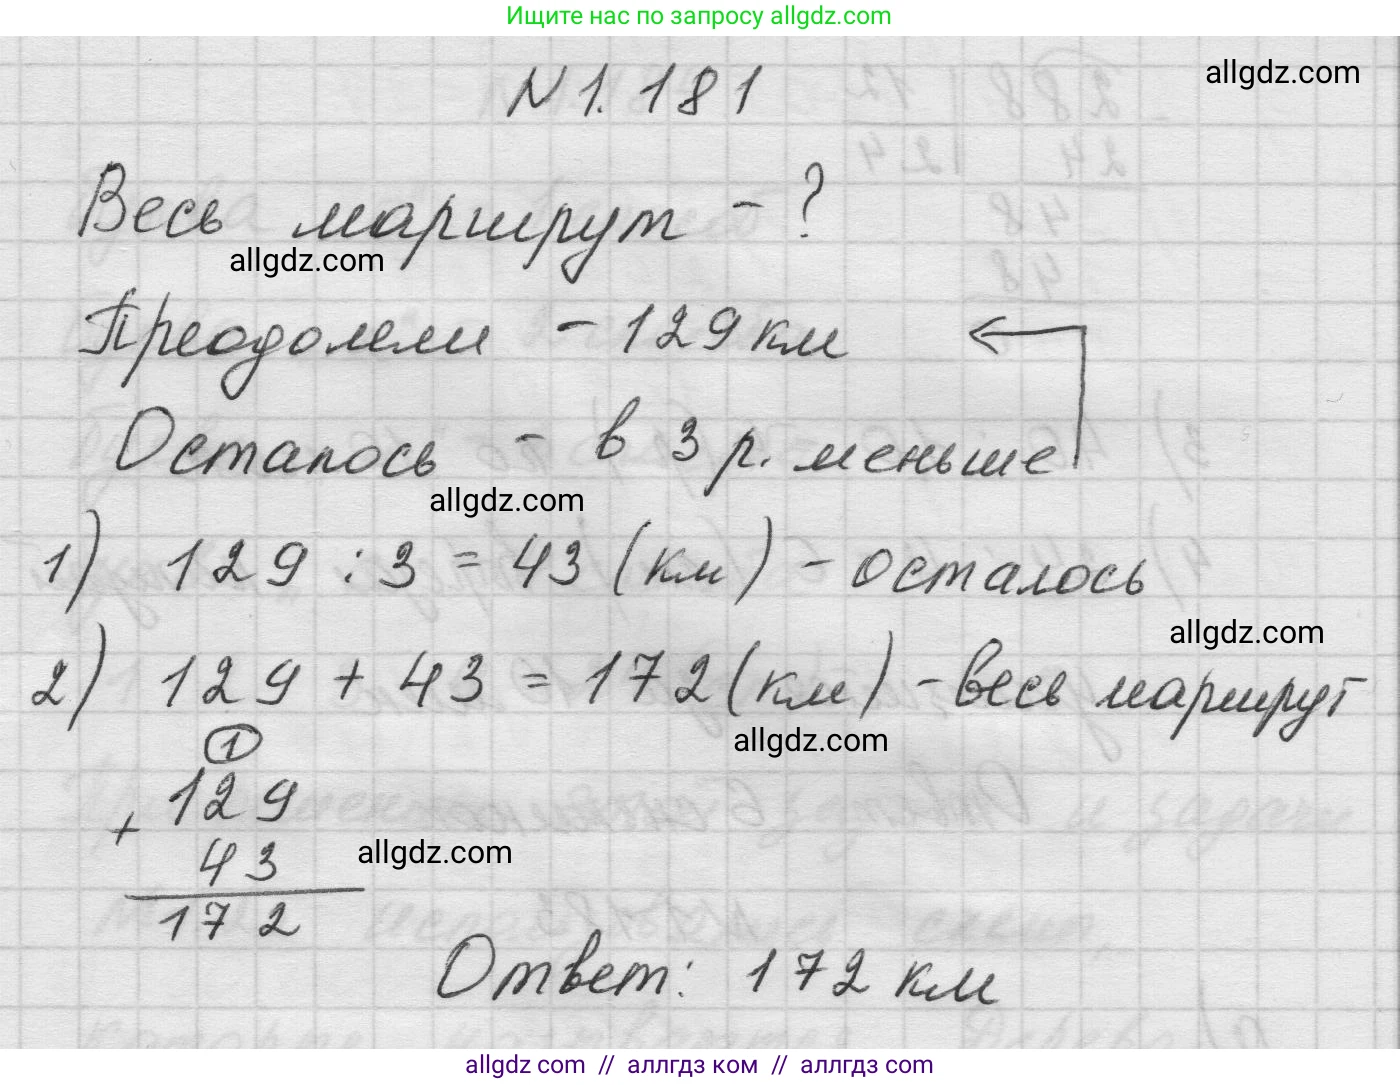 Ищите нас по запросу allgdz.com
allgdz.com
N 1.181
Весь маршрут - ?
allgdz.com
Преодолели - 129 км
Осталось - в 3 р. меньше
allgdz.com
1) 129 : 3 = 43 (км) - осталось
allgdz.com
2) 129 + 43 = 172 (км) - весь маршрут
allgdz.com
1
129
+
43
allgdz.com
172
Ответ: 172 км
allgdz.com // аллгдз ком // аллгдз.com